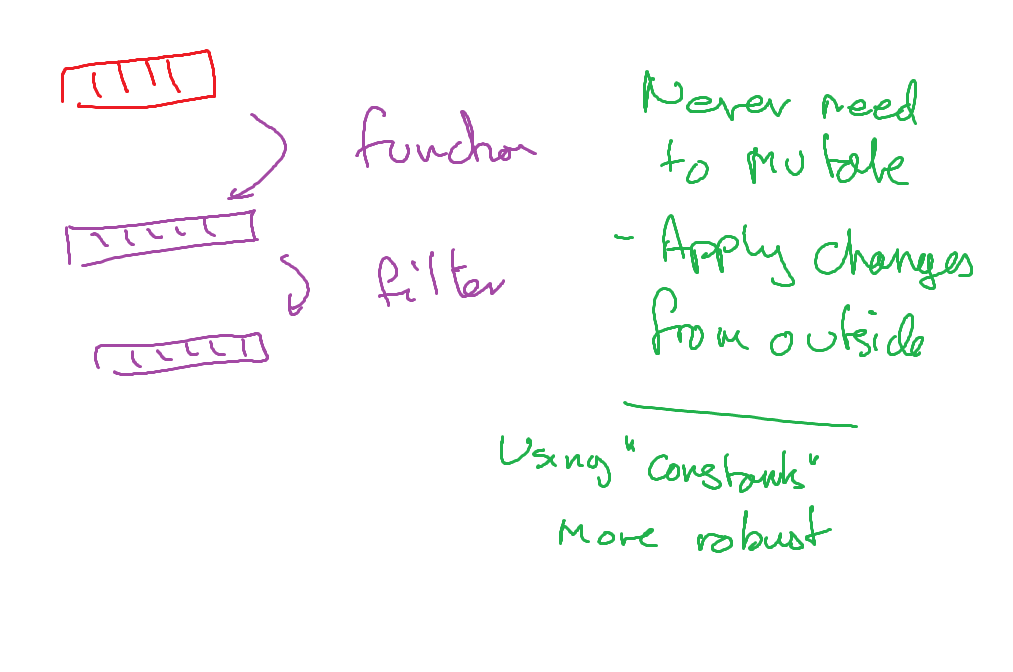 function
filter
Never need
to mutate
- Apply changes
from outside
Using "constants"
more robust